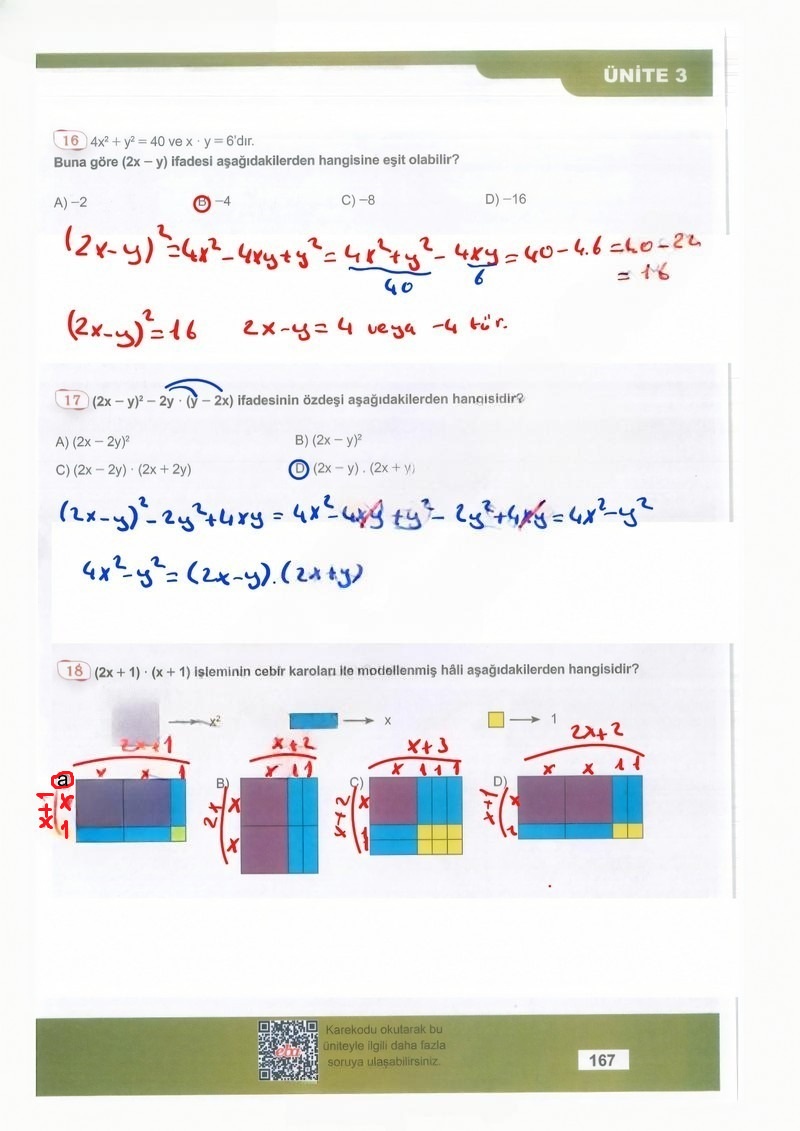 ÜNİTE 3
16 4x² + y² = 40 ve x · y = 6'dır.
Buna göre (2x – y) ifadesi aşağıdakilerden hangisine eşit olabilir?
A) –2 B) –4 C) –8 D) –16
(2x-y)² = 4x² - 4xy + y² = 4x² + y² - 4xy = 40 - 4.6 = 40 - 24
40 6 = 16
(2x-y)² = 16 2x-y = 4 veya -4 tür.
17 (2x – y)² – 2y · (y – 2x) ifadesinin özdeşi aşağıdakilerden hangisidir?
A) (2x – 2y)² B) (2x – y)²
C) (2x – 2y) · (2x + 2y) D) (2x – y) . (2x + y)
(2x-y)² - 2y² + 4xy = 4x² - 4xy + y² - 2y² + 4xy = 4x² - y²
4x² - y² = (2x-y).(2x+y)
18 (2x + 1) · (x + 1) işleminin cebir karoları ile modellenmiş hâli aşağıdakilerden hangisidir?
x² x 1
2x+1 x+2 x+3 2x+2
x x 1 x 1 1 x 1 1 1 x x 1 1
a B) C) D)
x+1 x 1 2x x x x+2 x 1 x+1 x 1
Karekodu okutarak bu
üniteyle ilgili daha fazla
soruya ulaşabilirsiniz.
eba
167